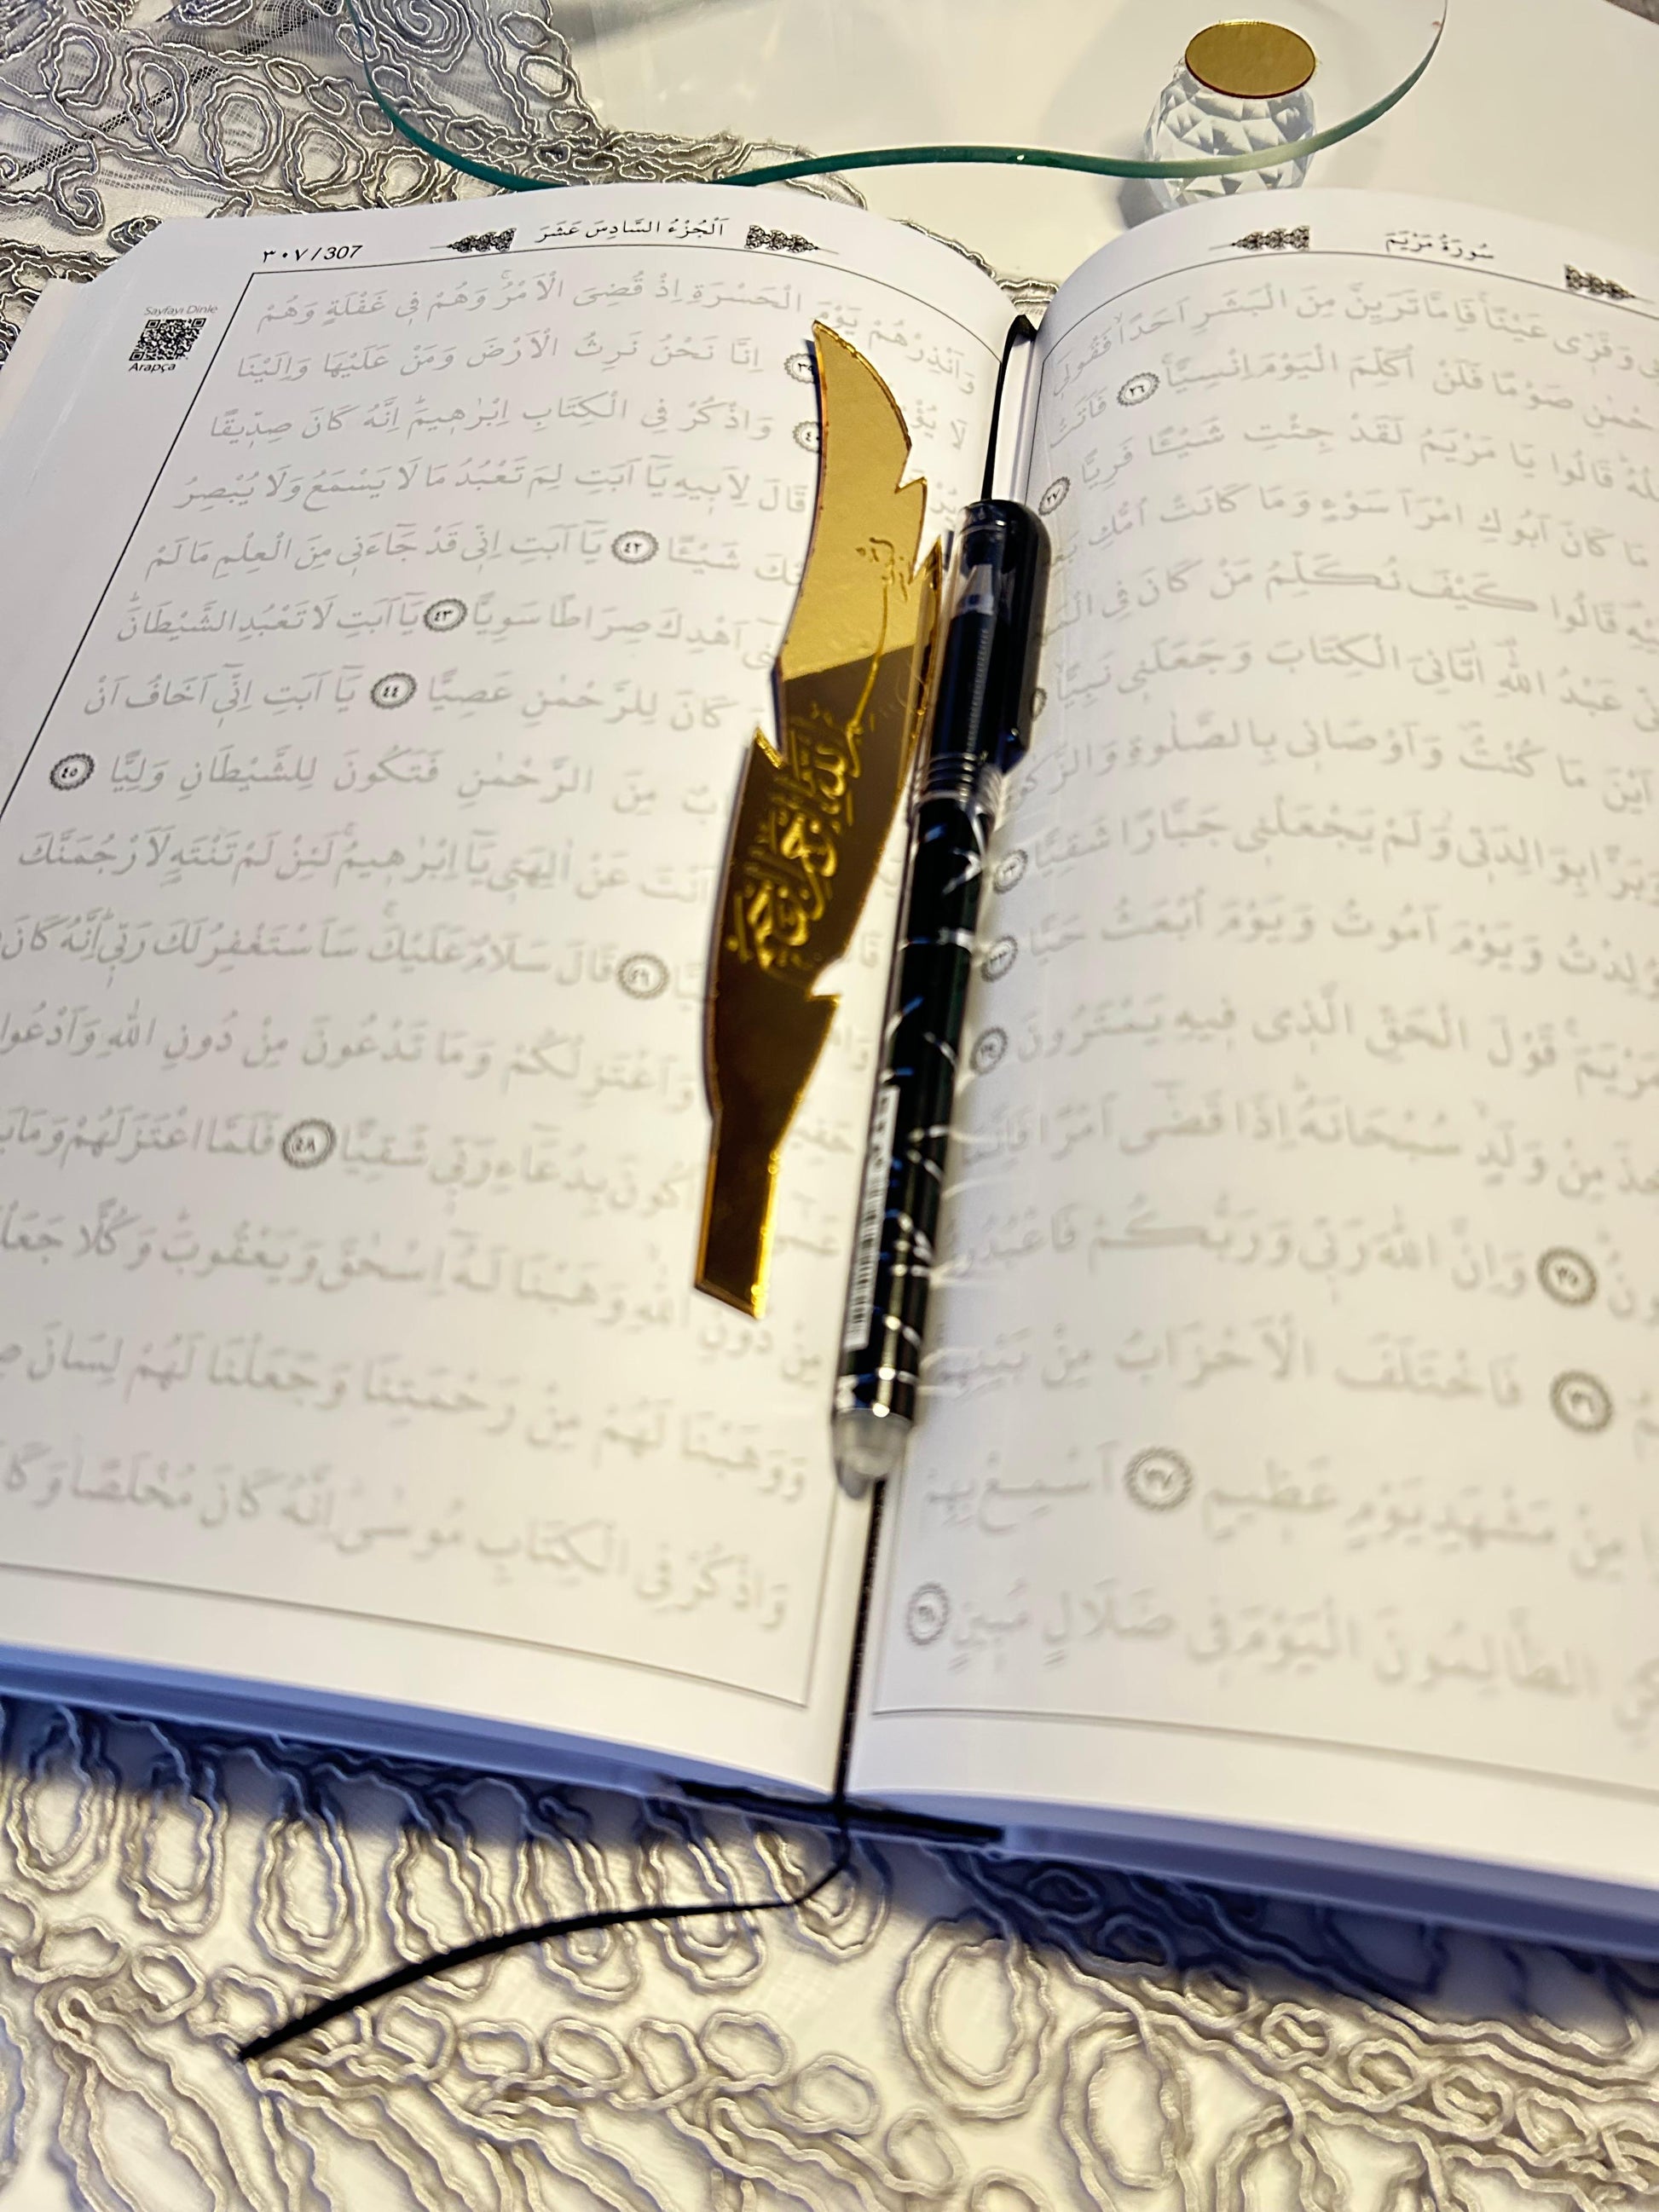 سُورَةُ مَرْيَمَ
وَقَرّٖى عَيْنًاۚ فَاِمَّا تَرَيِنَّ مِنَ الْبَشَرِ اَحَدًاۙ فَقُولٖٓي
صَوْمًا فَلَنْ اُكَلِّمَ الْيَوْمَ اِنْسِيًّاۚ ٢٦ فَاَتَتْ
قَالُوا يَا مَرْيَمُ لَقَدْ جِئْتِ شَيْـًٔا فَرِيًّا ٢٧
مَا كَانَ اَبُوكِ امْرَاَ سَوْءٍ وَمَا كَانَتْ اُمُّكِ
قَالُوا كَيْفَ نُكَلِّمُ مَنْ كَانَ فِي
عَبْدُ اللّٰهِ اٰتَانِيَ الْكِتَابَ وَجَعَلَنٖي نَبِيًّا
اَيْنَ مَا كُنْتُ وَاَوْصَانٖي بِالصَّلٰوةِ وَالزَّكٰوةِ
بِوَالِدَتٖي وَلَمْ يَجْعَلْنٖي جَبَّارًا شَقِيًّا ٣٢
وُلِدْتُ وَيَوْمَ اَمُوتُ وَيَوْمَ اُبْعَثُ حَيًّا ٣٣
مَرْيَمَ قَوْلَ الْحَقِّ الَّذٖي فٖيهِ يَمْتَرُونَ ٣٤
مِنْ وَلَدٍ سُبْحَانَهُ اِذَا قَضٰٓى اَمْرًا فَاِنَّمَا
٣٥ وَاِنَّ اللّٰهَ رَبّٖي وَرَبُّكُمْ فَاعْبُدُوهُ
٣٦ فَاخْتَلَفَ الْاَحْزَابُ مِنْ بَيْنِهِمْ
مِنْ مَشْهَدِ يَوْمٍ عَظٖيمٍ ٣٧ اَسْمِعْ بِهِمْ
الظَّالِمُونَ الْيَوْمَ فٖي ضَلَالٍ مُبٖينٍ ٣٨
اَلْجُزْءُ السَّادِسَ عَشَرَ
٣٠٧ / 307
Sayfayı Dinle
Arapça
وَاَنْذِرْهُمْ يَوْمَ الْحَسْرَةِ اِذْ قُضِيَ الْاَمْرُۚ وَهُمْ فٖي غَفْلَةٍ وَهُمْ
لَا ٣٩ اِنَّا نَحْنُ نَرِثُ الْاَرْضَ وَمَنْ عَلَيْهَا وَاِلَيْنَا
٤٠ وَاذْكُرْ فِي الْكِتَابِ اِبْرٰهٖيمَ اِنَّهُ كَانَ صِدّٖيقًا
قَالَ لِاَبٖيهِ يَٓا اَبَتِ لِمَ تَعْبُدُ مَا لَا يَسْمَعُ وَلَا يُبْصِرُ
شَيْـًٔا ٤٢ يَٓا اَبَتِ اِنّٖي قَدْ جَٓاءَنٖي مِنَ الْعِلْمِ مَا لَمْ
اَهْدِكَ صِرَاطًا سَوِيًّا ٤٣ يَٓا اَبَتِ لَا تَعْبُدِ الشَّيْطَانَ
كَانَ لِلرَّحْمٰنِ عَصِيًّا ٤٤ يَٓا اَبَتِ اِنّٖٓي اَخَافُ اَنْ
مِنَ الرَّحْمٰنِ فَتَكُونَ لِلشَّيْطَانِ وَلِيًّا ٤٥
اَنْتَ عَنْ اٰلِهَتٖي يَٓا اِبْرٰهٖيمُ لَئِنْ لَمْ تَنْتَهِ لَاَرْجُمَنَّكَ
٤٦ قَالَ سَلَامٌ عَلَيْكَ سَاَسْتَغْفِرُ لَكَ رَبّٖي اِنَّهُ كَانَ
وَاَعْتَزِلُكُمْ وَمَا تَدْعُونَ مِنْ دُونِ اللّٰهِ وَاَدْعُوا
بِدُعَٓاءِ رَبّٖي شَقِيًّا ٤٨ فَلَمَّا اعْتَزَلَهُمْ وَمَا
مِنْ دُونِ اللّٰهِ وَهَبْنَا لَهُ اِسْحٰقَ وَيَعْقُوبَ وَكُلًّا
وَوَهَبْنَا لَهُمْ مِنْ رَحْمَتِنَا وَجَعَلْنَا لَهُمْ لِسَانَ
وَاذْكُرْ فِي الْكِتَابِ مُوسٰى اِنَّهُ كَانَ مُخْلَصًا
بسم الله الرحمن الرحيم